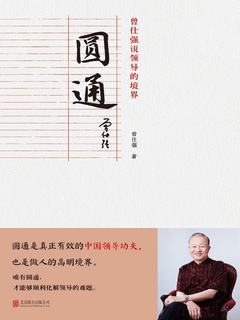 曾仕强说领导的境界
圆通
曾仕强
曾仕强 著
圆通是真正有效的中国领导功夫，
也是做人的高明境界。
唯有圆通，
才能够顺利化解领导的难题。
北京联合出版公司